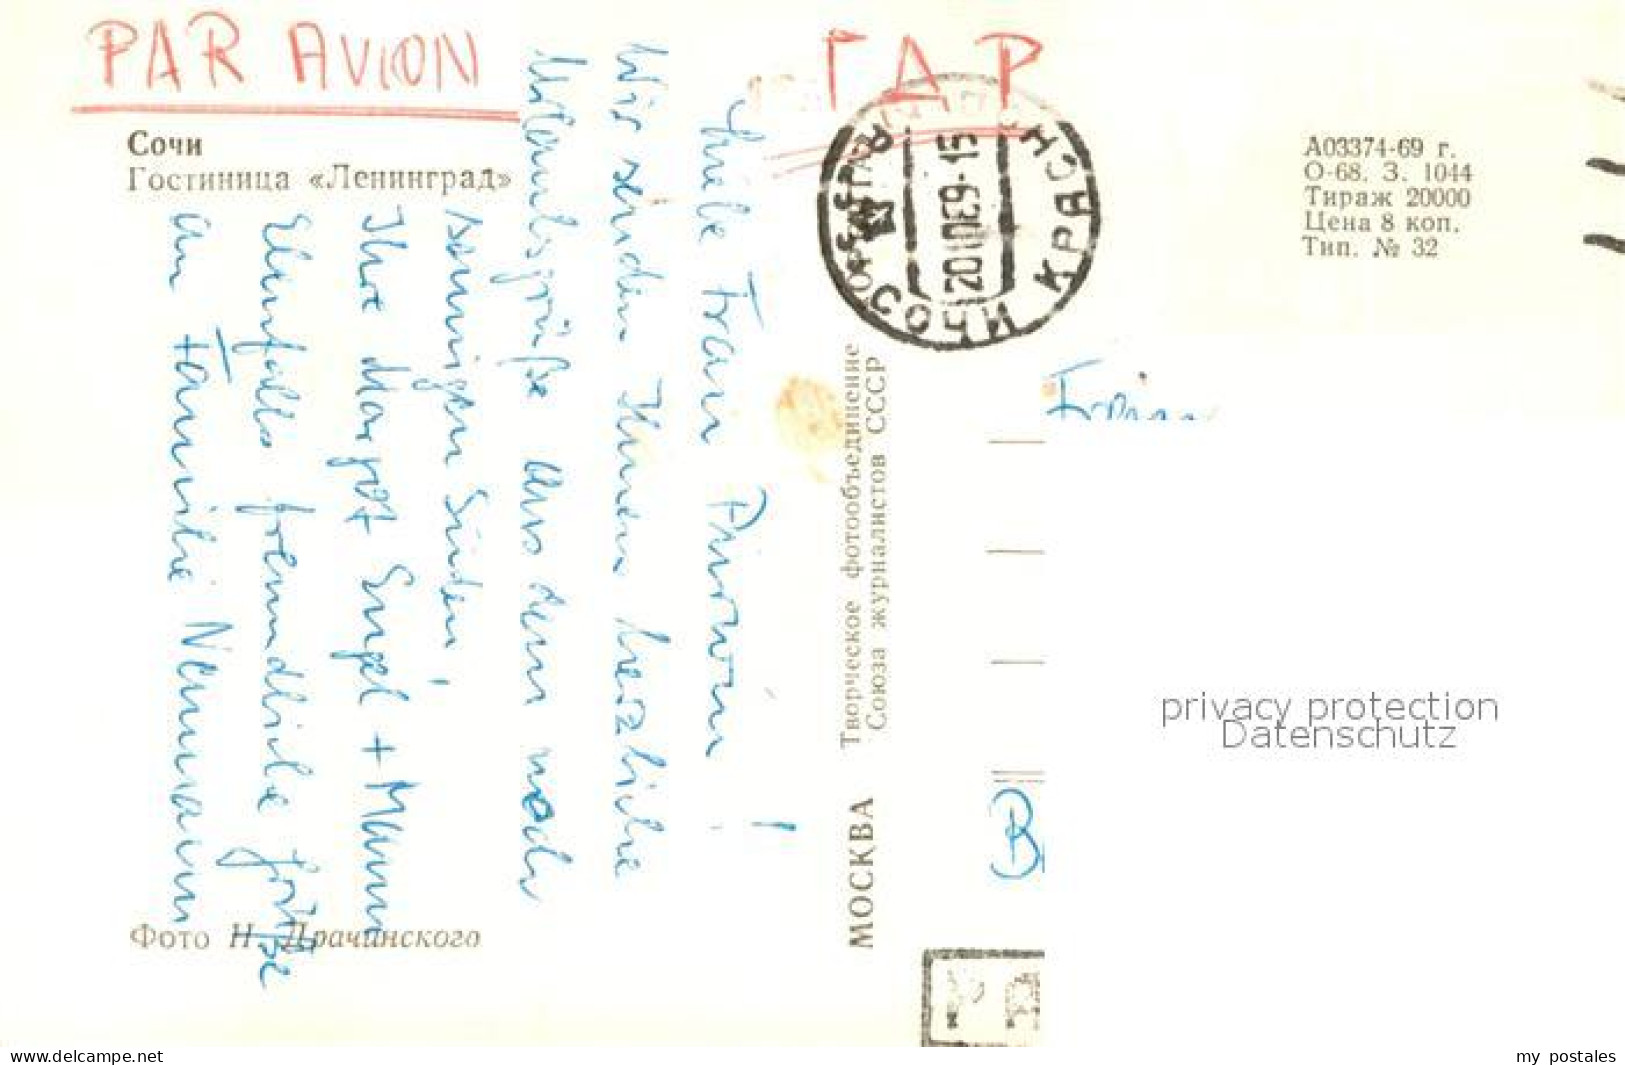 PAR AVION
ГДР
Сочи
Гостиница «Ленинград»
Liebe Frau
Wir senden Ihnen herzliche
Urlaubsgrüße aus dem noch
sonnigen Süden,
Ihre Margot Engel + Mann
Ebenfalls freundliche Grüße
an Familie Neumann
Фото Н. Драчинского
МОСКВА Творческое фотообъединение
Союза журналистов СССР
СОЧИ КРАСН
А03374-69 г.
О-68. З. 1044
Тираж 20000
Цена 8 коп.
Тип. № 32
privacy protection
Datenschutz
www.delcampe.net
my postales